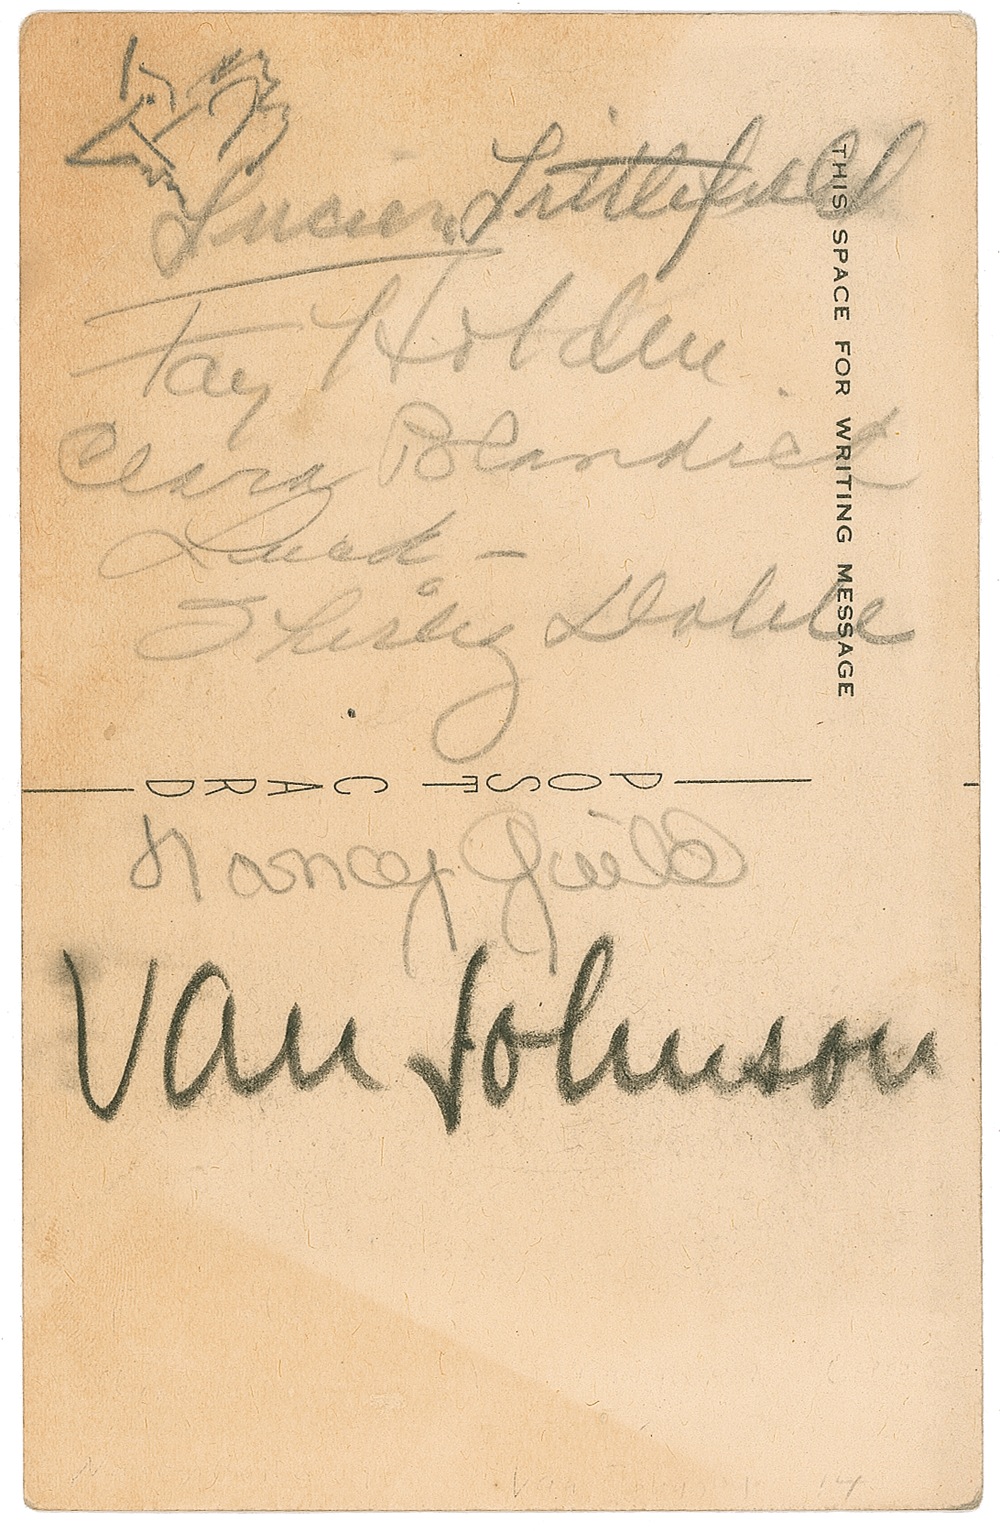 Lucien Littlefield
Fay Holden
Clara Blandick
Luck -
Shirley
Nancy Guild
Van Johnson
POST CARD
THIS SPACE FOR WRITING MESSAGE
14